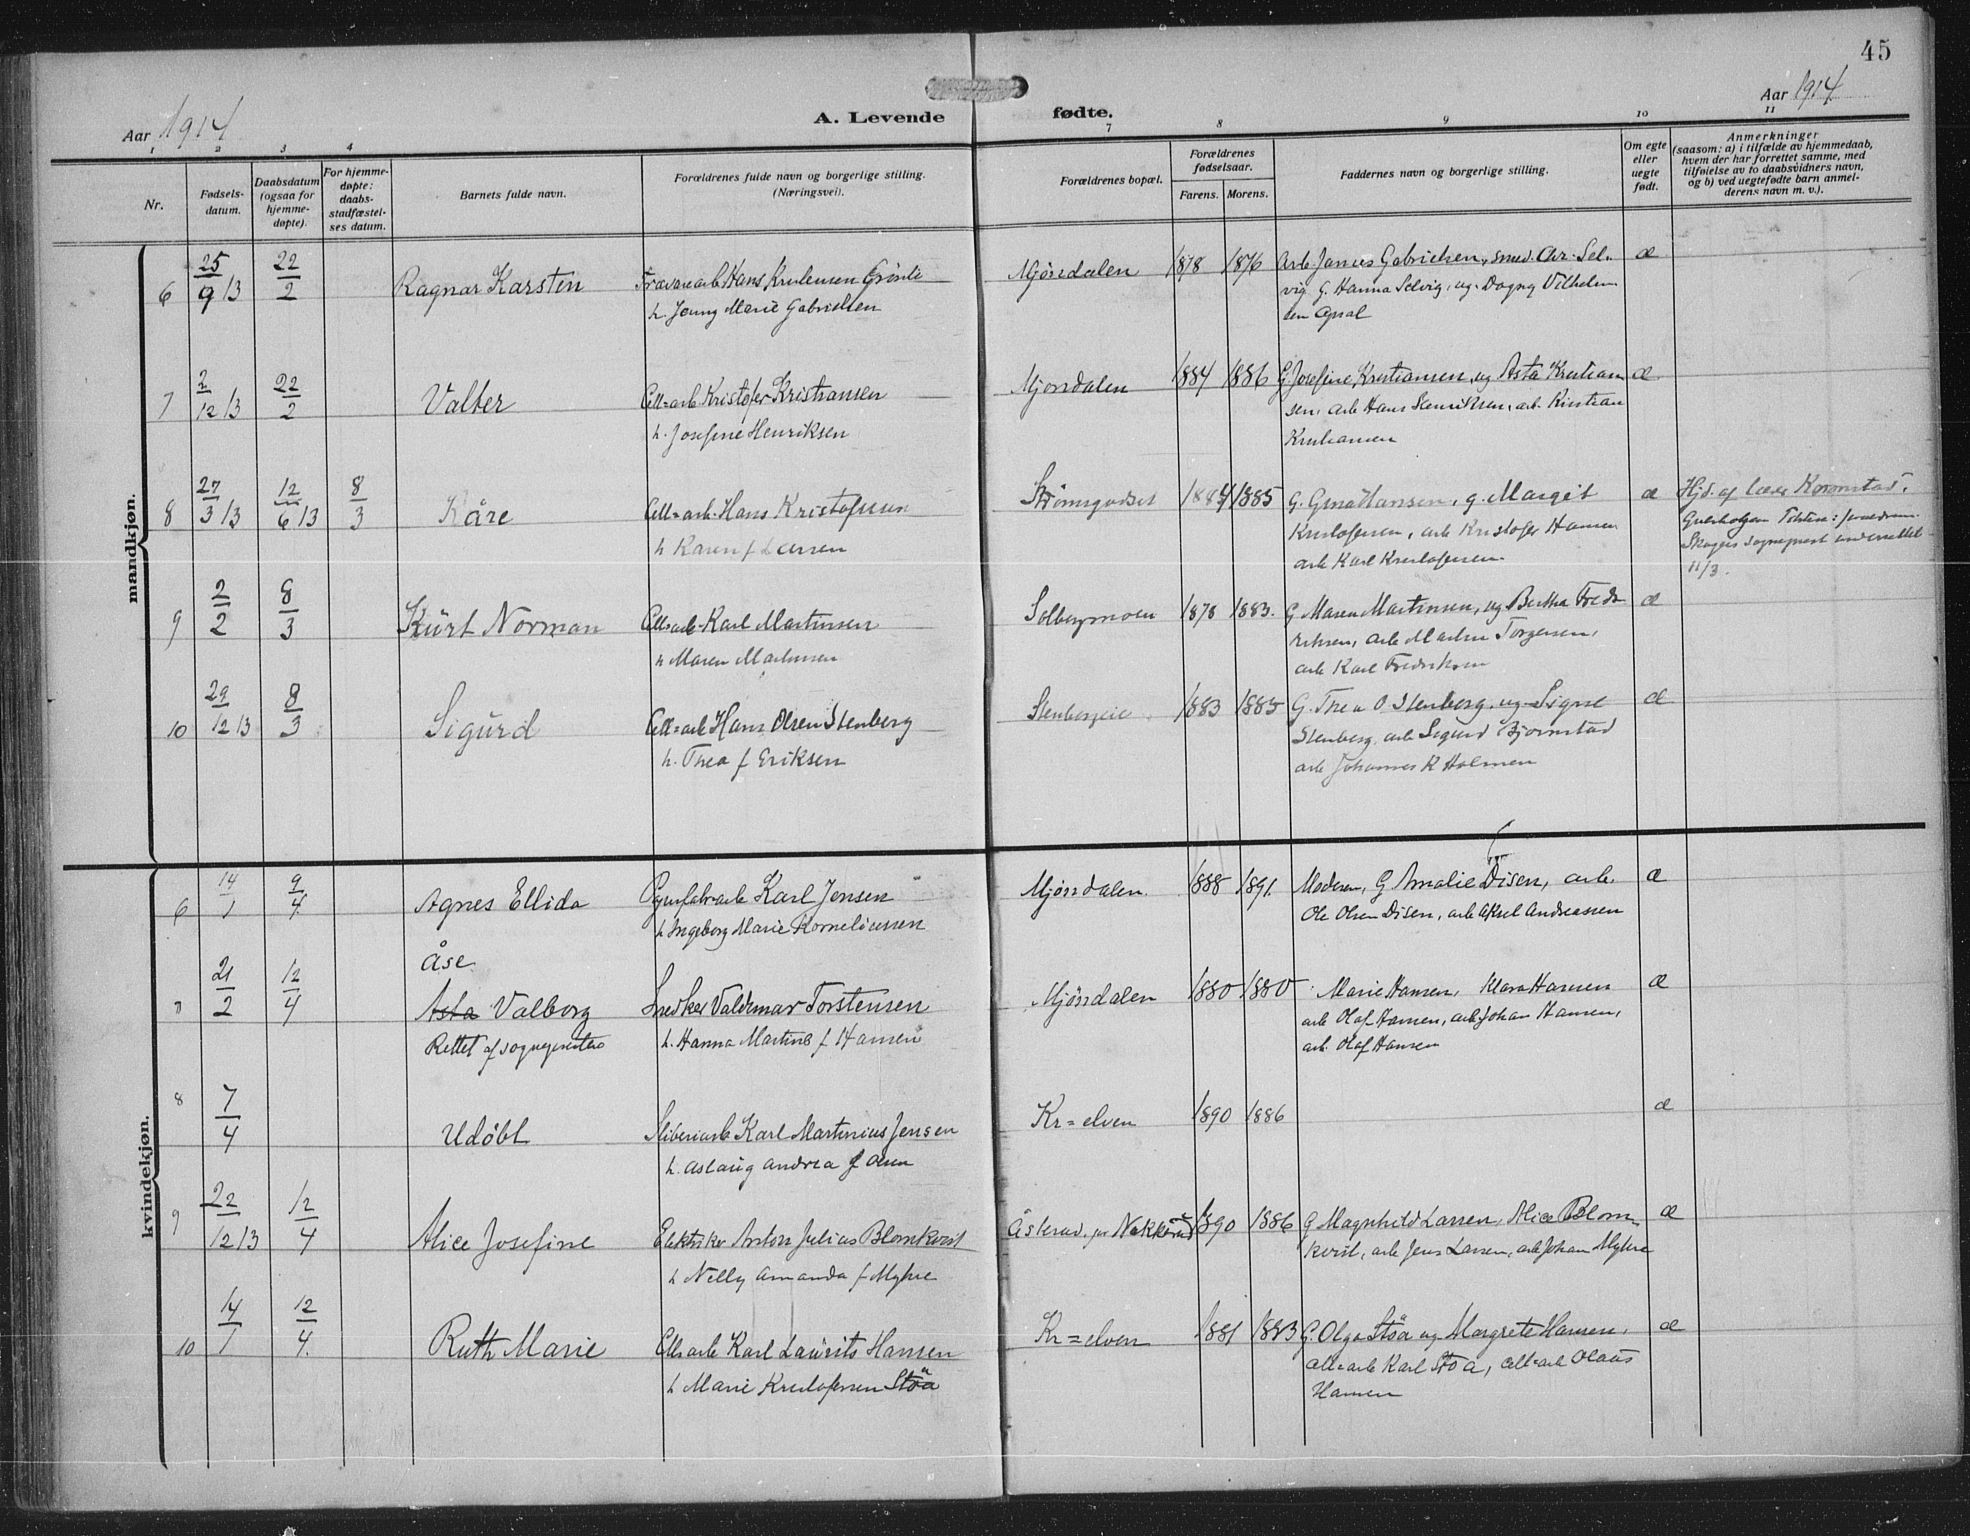 45
Aar 1914
A. Levende fødte.
Aar 1914
1 2 3 4 7 8 9 10 11
Nr.
Fødsels-
datum.
Daabsdatum
(ogsaa for
hjemme-
døpte).
For hjemme-
døpte:
daabs-
stadfæstel-
ses datum.
Barnets fulde navn.
Forældrenes fulde navn og borgerlige stilling.
(Næringsvei).
Forældrenes bopæl.
Forældrenes
fødselsaar.
Farens. Morens.
Faddernes navn og borgerlige stilling.
Om egte
eller
uegte
født.
Anmerkninger
(saasom: a) i tilfælde av hjemmedaab,
hvem der har forrettet samme, med
tilføielse av to daabsvidners navn,
og b) ved uegtefødte barn anmel-
derens navn m. v.).
mandkjøn.
6 25/9 13 22/2 Ragnar Karsten Hans Grønli Mjøndalen 1878 1876 Arb. Gabrielsen, smed. Chr. Sel-
h. Jenny Marie Gabrielsen vig. G. Hanna Selvig, og Dagny Vilhelm
sen
7 2/12 13 22/2 Valter Cell=arb Kristofer Kristiansen Mjøndalen 1884 1886 G Josefine Kristiansen, og Asta Kristian
h. Josefine Henriksen sen, arb Hans Henriksen, arb. Kristian
Kristiansen
8 27/3 13 12/6 13 8/3 Kåre Cell=arb. Hans Kristofersen Strømsgodset 1884 1885 G. Gina Hansen, g. Margit æ Hjd. af lærer
h Karen f Larsen Kristofersen, arb Kristofer Hansen
arb Karl Kristofersen
Skoger sogneprest underrettet
11/3.
9 2/2 8/3 Kurt Norman Cell=arb Karl Martinsen Solbergmoen 1878 1883. G Maren Martinsen, og Bertha Fred- æ
h Maren Martinsen riksen, arb Martin Torgersen,
arb Karl Fredriksen
10 29/12 13 8/3 Sigurd Cell=arb Hans Olsen Stenberg 1883 1885 G. Thea O Stenberg, og Signe æ
h. Thea f Eriksen Stenberg, arb Sigurd Bjørnstad
arb Johannes K Holmen
kvindekjøn.
6 14/1 9/4 Agnes Ellida Karl Jensen Mjøndalen. 1888 1891. Moderen, G Amalie Disen, arb. æ
h Ingeborg Marie Korneliussen Ole Olsen Disen, arb Aksel Andreassen
Åse
7 21/2 12/4 Asta Valborg Snedker Valdemar Torstensen Mjøndalen 1880 1880 Marie Hansen, Klara Hansen æ
Rettet af sognepresten h. Hanna Martine f Hansen arb Olaf Hansen, arb. Johan Hansen,
arb. Olaf Hansen
8 7/4 Udøbt Sliberiarb Karl Martinius Jensen Kr=elven 1890 1886 æ
h. Aslaug Andrea f Olsen
9 22/12 13 12/4 Alice Josefine Elektriker Anton Julius Blomkvist Åsterud. pr Nakkerud 1890 1886 G Magnhild Larsen, Alice Blom- æ
h Nelly Amanda f Myhre kvist, arb Jens Larsen, arb Johan Myhre
10 14/1 12/4. Ruth Marie Cell=arb Karl Laurits Hansen Kr=elven 1881 1883 G Olga Støa og Margrete Hansen, æ
h Marie Kristofersen Støa cell=arb Karl Støa, cell=arb Olaus
Hansen